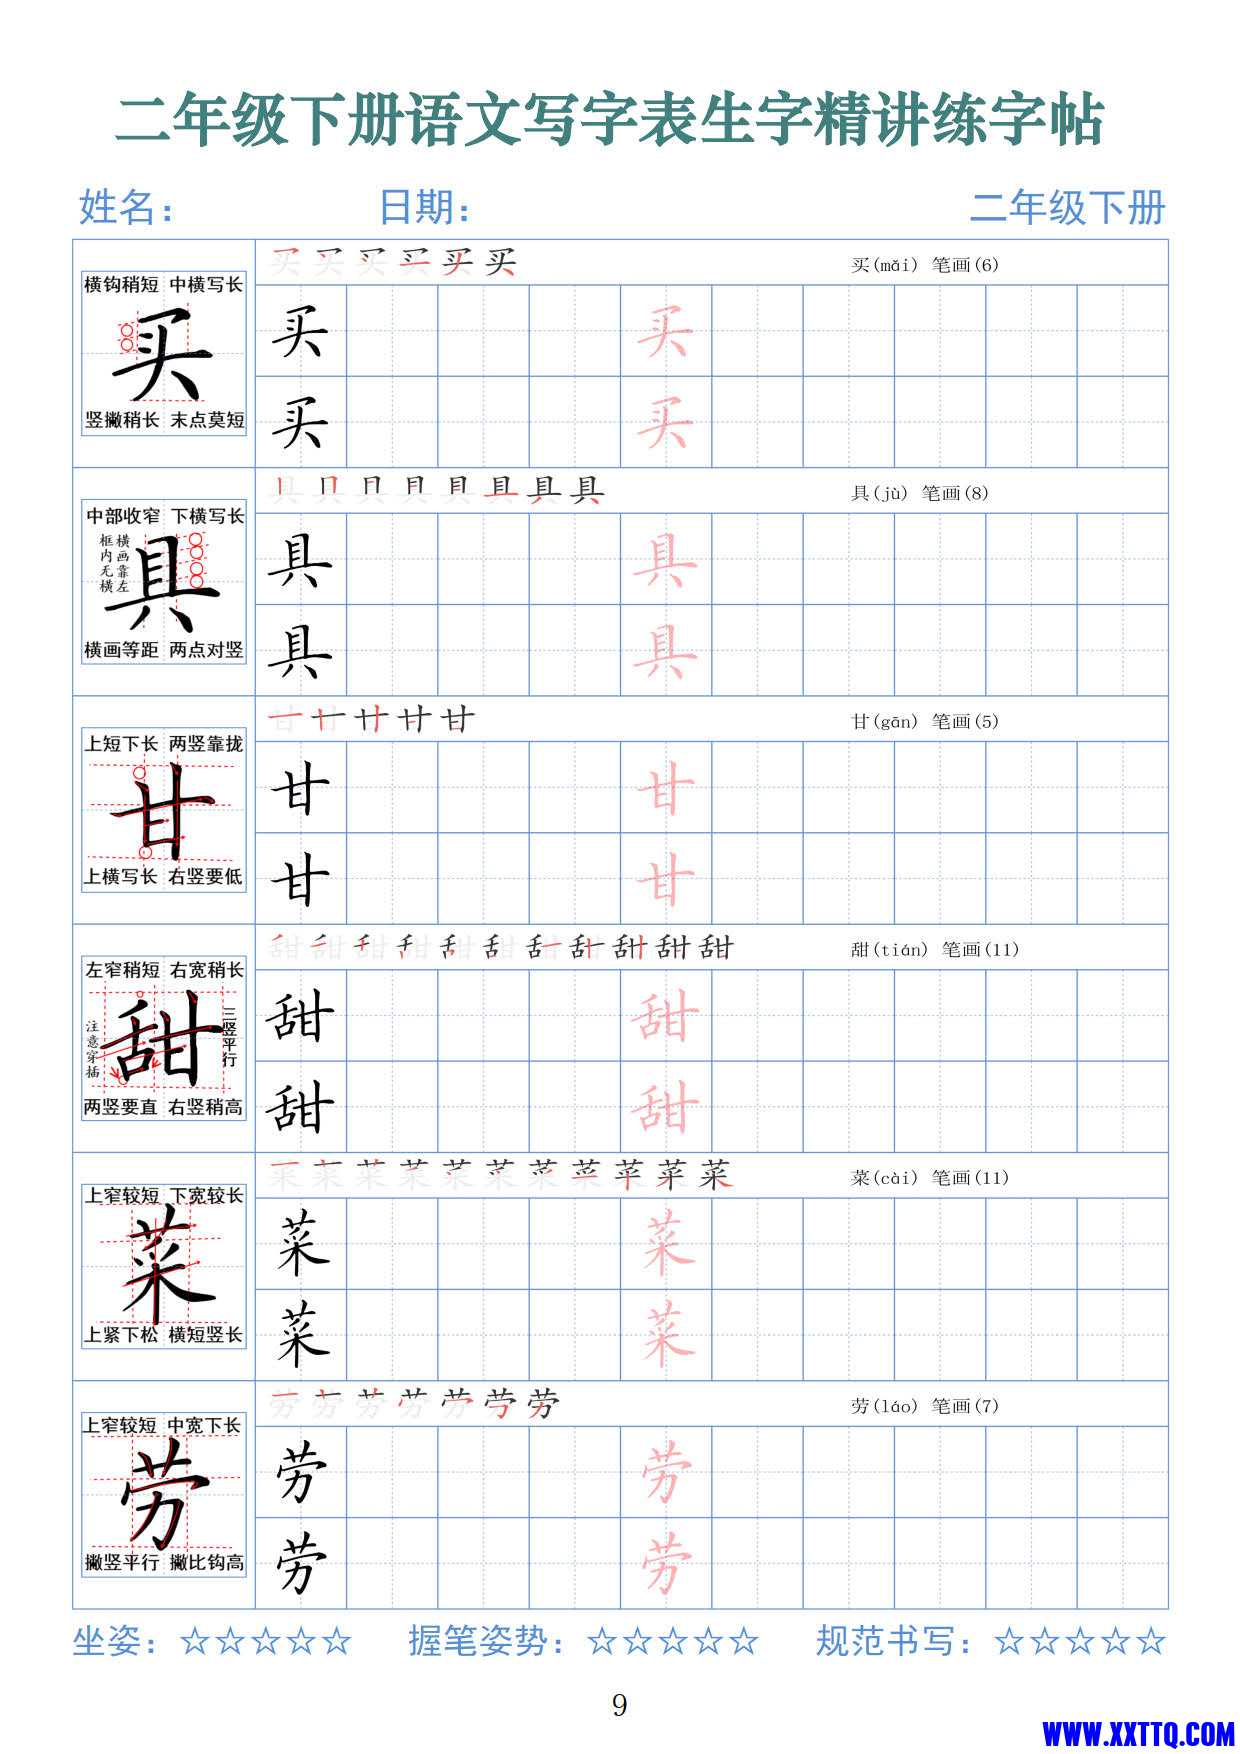 二年级下册语文写字表生字精讲练字帖
姓名： 日期： 二年级下册
买(mǎi) 笔画(6)
横钩稍短 中横写长
买
竖撇稍长 末点莫短
买 买
买 买
具(jù) 笔画(8)
中部收窄 下横写长
框内无横 横画靠左
具
横画等距 两点对竖
具 具
具 具
甘(gān) 笔画(5)
上短下长 两竖靠拢
甘
上横写长 右竖要低
甘 甘
甘 甘
甜(tián) 笔画(11)
左窄稍短 右宽稍长
注意穿插 甜 三竖平行
两竖要直 右竖稍高
甜 甜
甜 甜
菜(cài) 笔画(11)
上窄较短 下宽较长
菜
上紧下松 横短竖长
菜 菜
菜 菜
劳(láo) 笔画(7)
上窄较短 中宽下长
劳
撇竖平行 撇比钩高
劳 劳
劳 劳
坐姿：☆☆☆☆☆ 握笔姿势：☆☆☆☆☆ 规范书写：☆☆☆☆☆
9
WWW.XXTTQ.COM